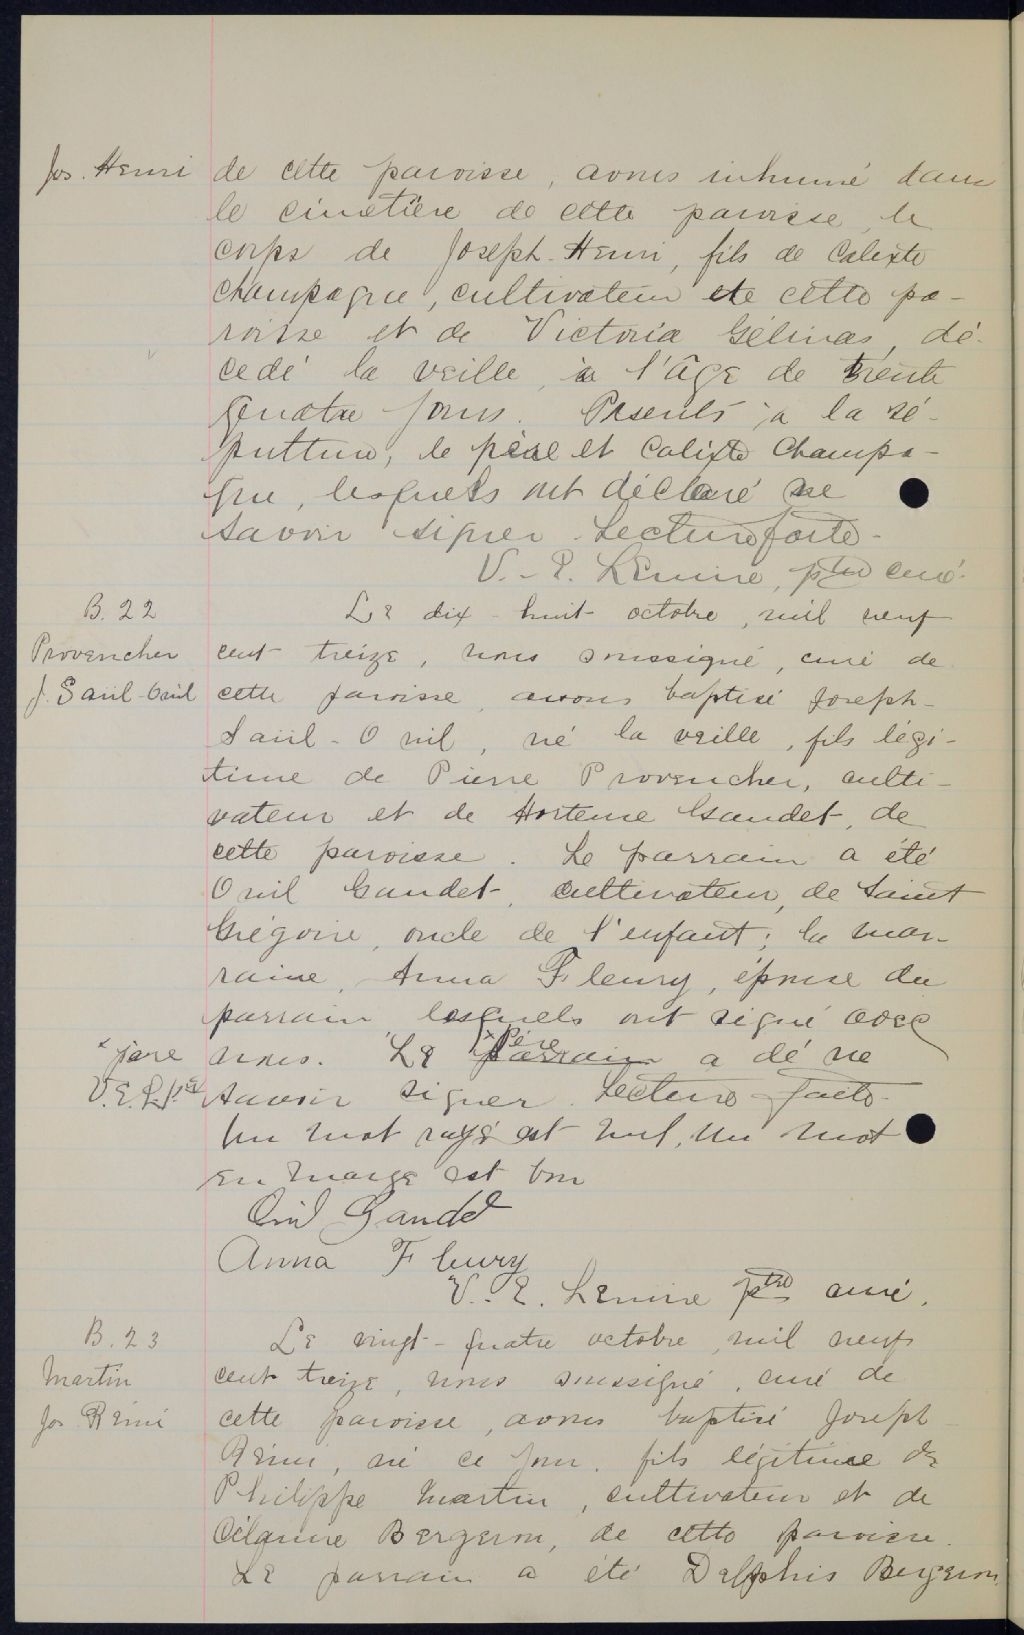 Jos. Henri
de cette paroisse, avons inhumé dans
le cimetière de cette paroisse, le
corps de Joseph-Henri, fils de Calixte
Champagne, cultivateur de cette pa-
roisse et de Victoria Gélinas, dé-
cédé la veille, à l'âge de trente
quatre jours. Présents à la sé-
pulture, le père et Calixte Champa-
gne, lesquels ont déclaré ne
savoir signer. Lecture faite.
V.-E. Lemire, ptre curé.
B. 22
Provencher
J. Saül-Onil
Le dix-huit octobre, mil neuf
cent treize, nous soussigné, curé de
cette paroisse, avons baptisé Joseph-
Saül-Onil, né la veille, fils légi-
time de Pierre Provencher, culti-
vateur et de Hortense Gaudet, de
cette paroisse. Le parrain a été
Onil Gaudet, cultivateur, de Saint
Grégoire, oncle de l'enfant; la mar-
raine, Anna Fleury, épouse du
parrain lesquels ont signé avec
nous. Le parrain x Père a dé ne
x père
V.E.L. ptre
savoir signer. Lecture faite.
Un mot rayé est nul, un mot
en marge est bon
Onil Gaudet
Anna Fleury
V.-E. Lemire ptre curé.
B. 23
Martin
Jos Rémi
Le vingt-quatre octobre, mil neuf
cent treize, nous soussigné, curé de
cette paroisse, avons baptisé Joseph-
Rémi, né ce jour, fils légitime de
Philippe Martin, cultivateur et de
Célanire Bergeron, de cette paroisse.
Le parrain a été Delphis Bergeron,